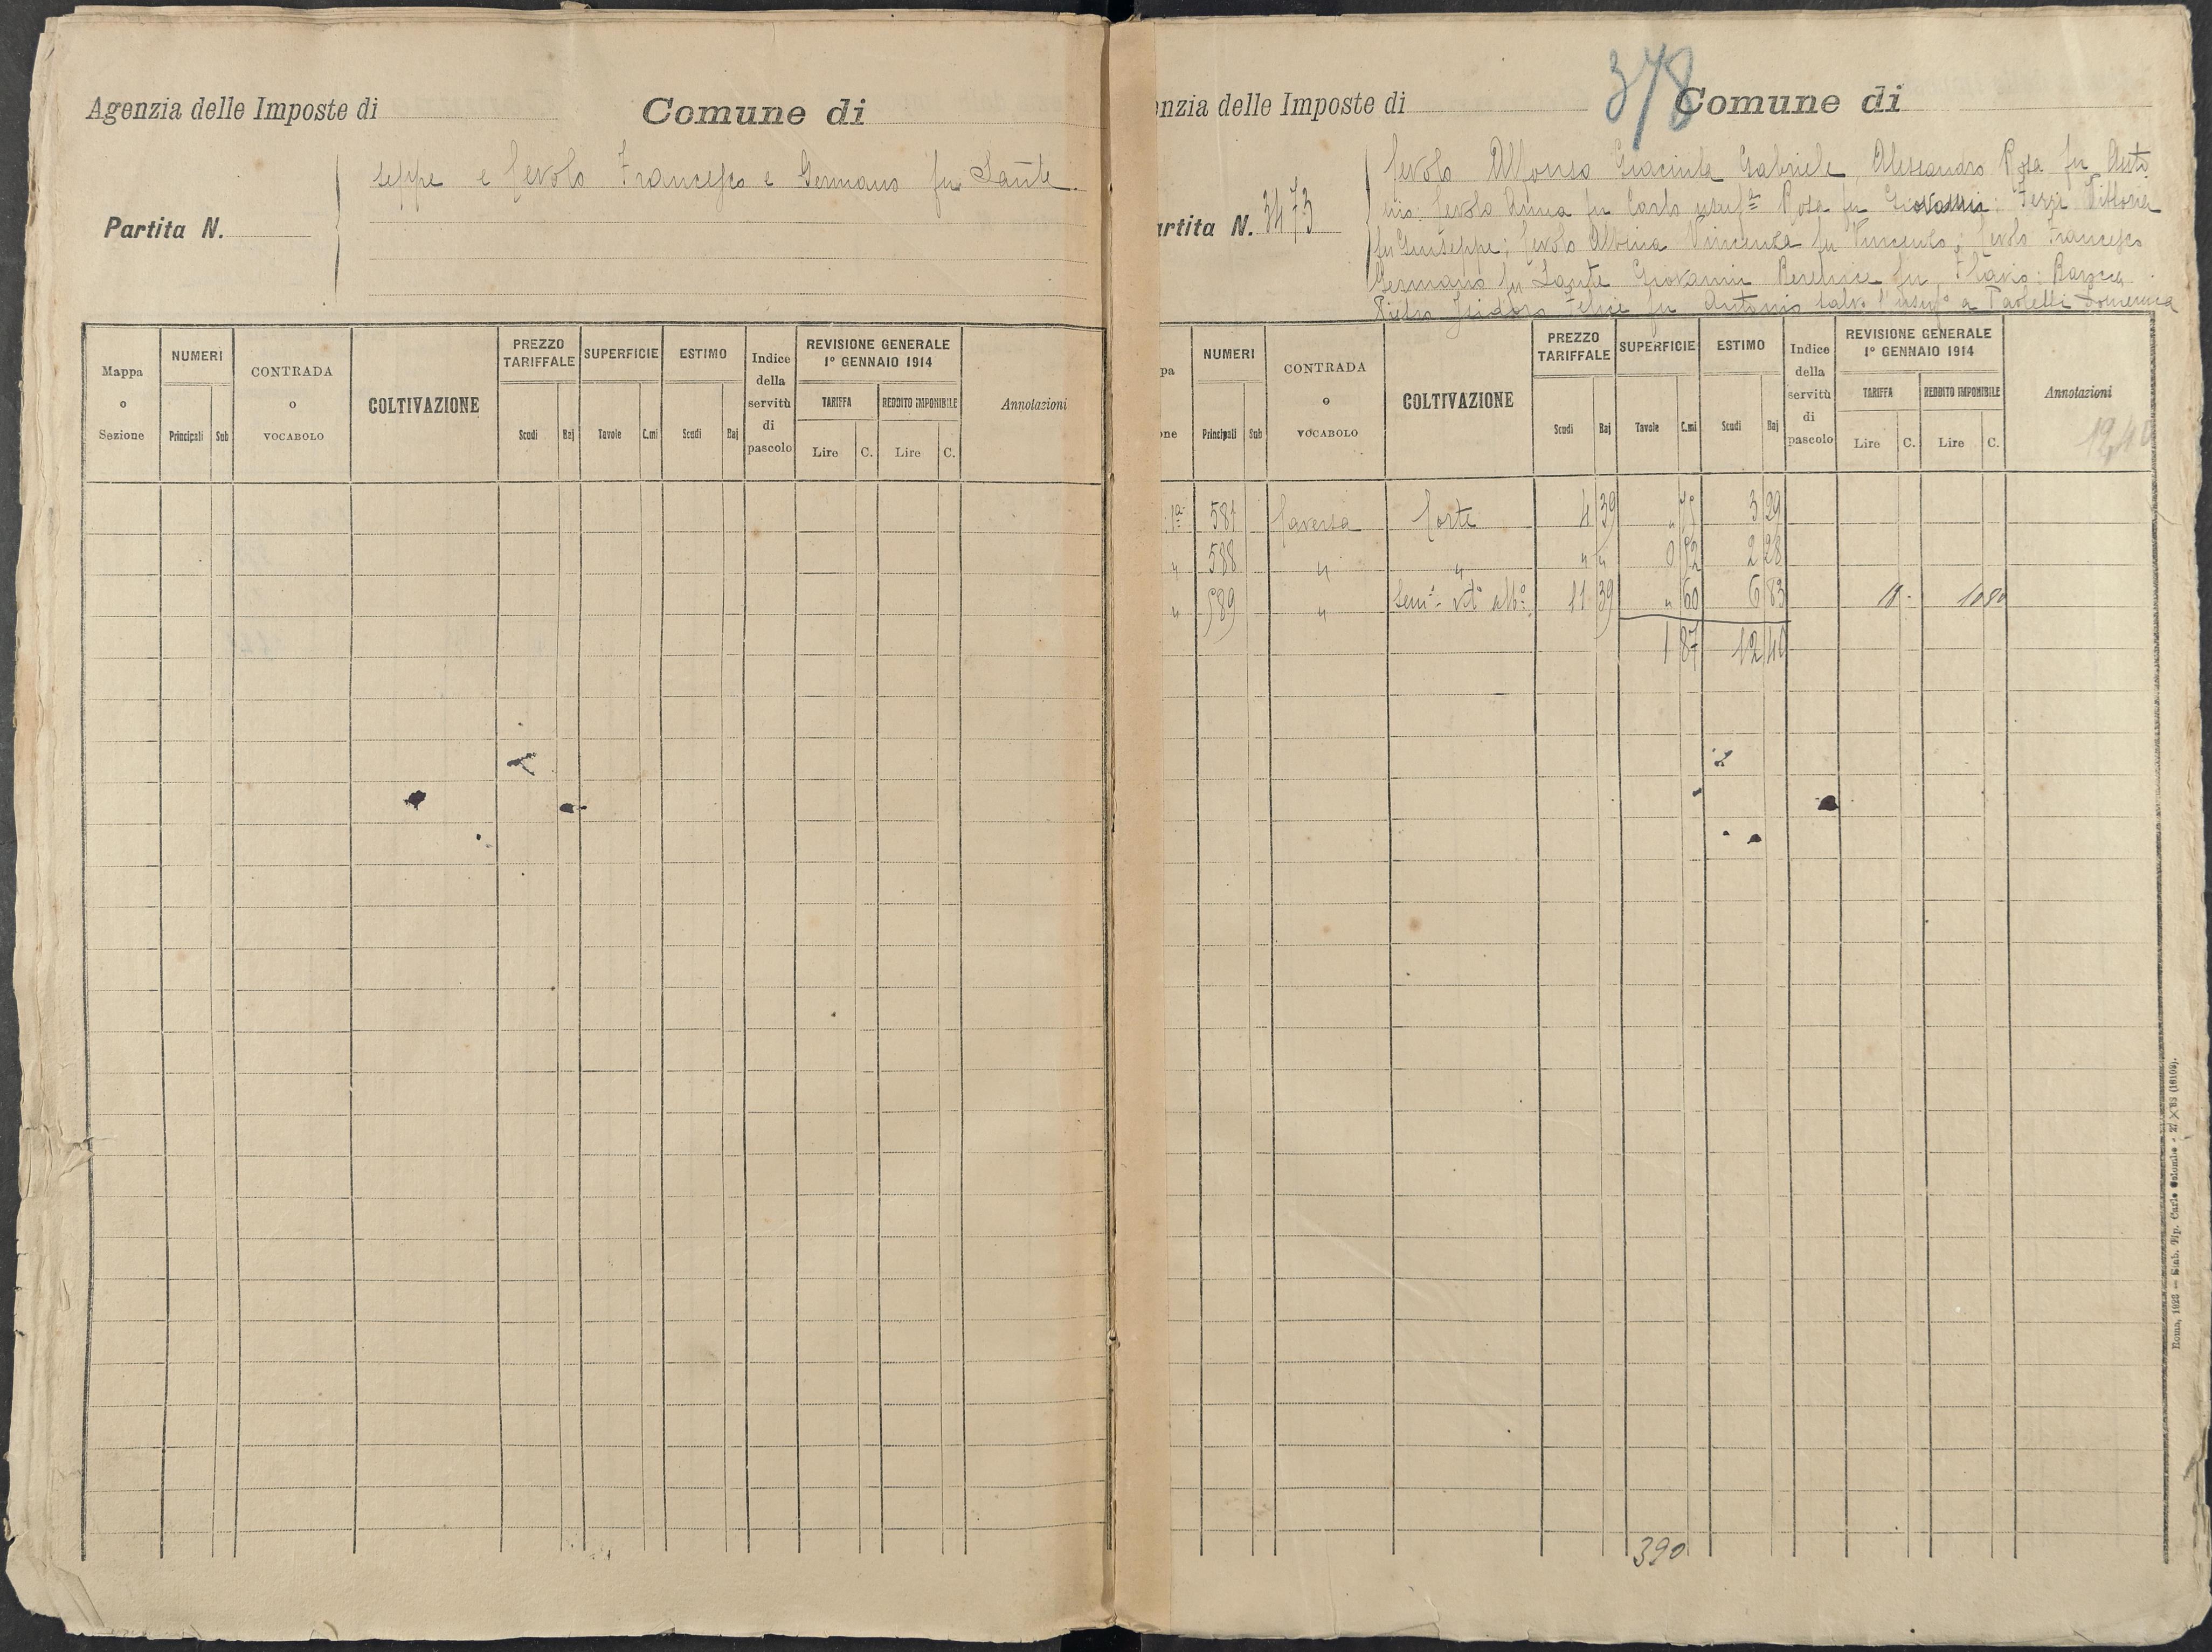 Agenzia delle Imposte di
Comune di
seppe e Cevolo Francesco e Germano fu Sante
Partita N.
Mappa o Sezione
NUMERI
Principali
Sub
CONTRADA o VOCABOLO
COLTIVAZIONE
PREZZO TARIFFALE
Scudi
Baj
SUPERFICIE
Tavole
C.mi
ESTIMO
Scudi
Baj
Indice della servitù di pascolo
REVISIONE GENERALE
1º GENNAIO 1914
TARIFFA
Lire
C.
REDDITO IMPONIBILE
Lire
C.
Annotazioni
378
enzia delle Imposte di
Comune di
artita N. 3473
Cevolo Alfonso Giacinta Gabriele Alessandro Rosa fu Anto
nio: Cevolo Anna fu Carlo Rosa fu Giovanni: Terzi Vittoria
fu Giuseppe; Cevolo Albina Vincenza fu Vincenzo; Cevolo Francesco
Germano fu Sante Giovanni Berenice fu Flavio:
Pietro Isidoro Felice fu Antonio salvo l'usufº a Paolelli Domenica
pa
one
NUMERI
Principali
Sub
CONTRADA o VOCABOLO
COLTIVAZIONE
PREZZO TARIFFALE
Scudi
Baj
SUPERFICIE
Tavole
C.mi
ESTIMO
Scudi
Baj
Indice della servitù di pascolo
REVISIONE GENERALE
1º GENNAIO 1914
TARIFFA
Lire
C.
REDDITO IMPONIBILE
Lire
C.
Annotazioni
1240
1ª 581 Caversa 4 39 " 75 3 29
" 588 " " " " 0 52 2 28
" 589 " 11 39 " 60 6 83 18 - 10 80
1 87 12 40
390
Roma, 1923 — Stab. Tip. Carlo Colombo